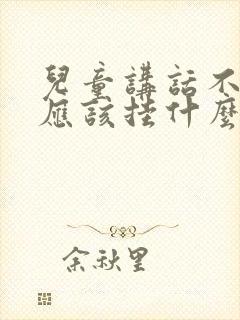 兒童講話不
應該挂什麼
余秋里